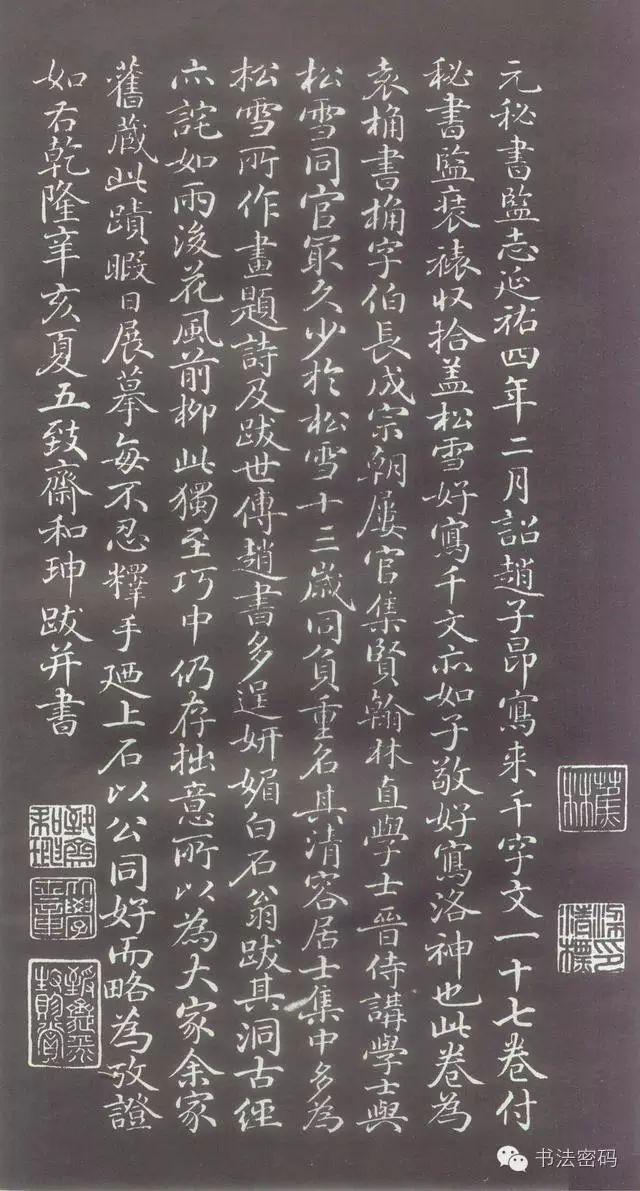 元秘書監志延祐四年二月詔趙子昂寫來千字文一十七卷付
秘書監裝裱収拾盖松雪好寫千文亦如子敬好寫洛神也此卷為
袁桷書桷字伯長成宗朝屢官集賢翰林直學士晉侍講學士與
松雪同官最久少於松雪十三歲同負重名其清容居士集中多為
松雪所作畫題詩及跋世傳趙書多逞妍媚白石翁跋其洞古經
亦詫如雨後花風前柳此獨至巧中仍存拙意所以為大家余家
舊蔵此蹟暇日展摹每不忍釋手廼上石以公同好而略為攷證
如右乾隆辛亥夏五致齋和珅跋并書
蕉林
致齋和珅
大學士章
书法密码